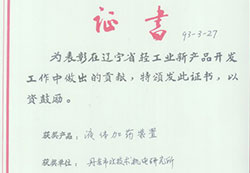 证书
93-3-27
为表彰在辽宁省轻工业新产品开发
工作中做出的贡献，特颁发此证书，以
资鼓励。
获奖产品：液体加药装置
获奖单位：丹东市